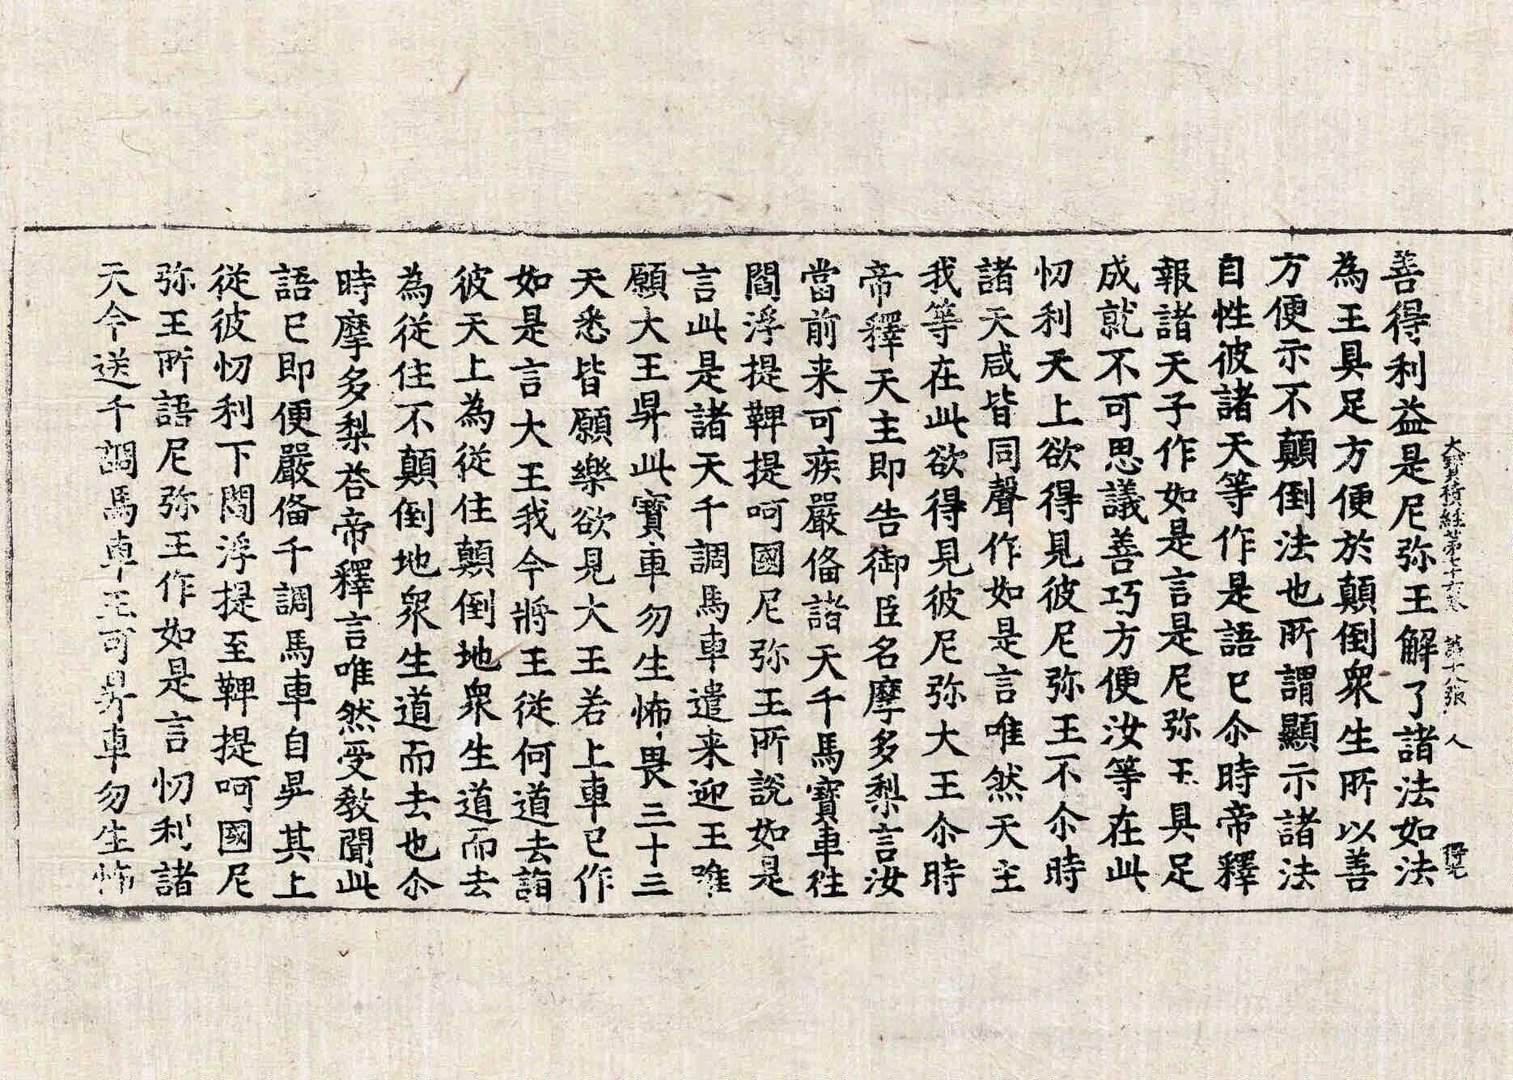 大寶積經第七十六卷 第十八張 人
善得利益是尼弥王解了諸法如法
為王具足方便於顛倒衆生所以善
方便示不顛倒法也所謂顯示諸法
自性彼諸天等作是語已尒時帝釋
報諸天子作如是言是尼弥王具足
成就不可思議善巧方便汝等在此
忉利天上欲得見彼尼弥王不尒時
諸天咸皆同聲作如是言唯然天主
我等在此欲得見彼尼弥大王尒時
帝釋天主即告御臣名摩多梨言汝
當前来可疾嚴俻諸天千馬寶車往
閻浮提鞞提呵國尼弥王所說如是
言此是諸天千調馬車遣来迎王唯
願大王昇此寶車勿生怖畏三十三
天悉皆願樂欲見大王若上車已作
如是言大王我今將王從何道去詣
彼天上為從住顛倒地衆生道而去
為從住不顛倒地衆生道而去也尒
時摩多梨荅帝釋言唯然受敎聞此
語已即便嚴俻千調馬車自昇其上
從彼忉利下閻浮提至鞞提呵國尼
弥王所語尼弥王作如是言忉利諸
天今送千調馬車王可昇車勿生怖